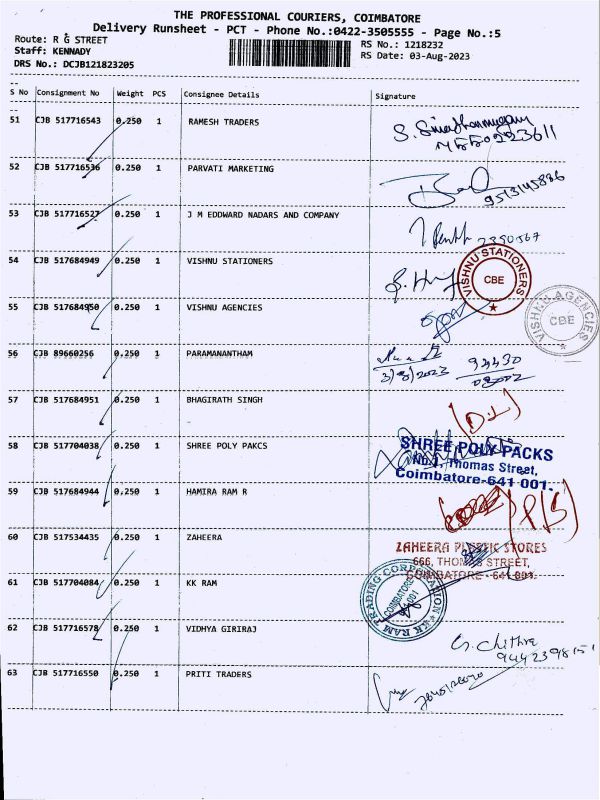 THE PROFESSIONAL COURIERS, COIMBATORE
Delivery Runsheet - PCT - Phone No.:0422-3505555 - Page No.:5
Route: R G STREET
RS No.: 1218232
Staff: KENNADY
RS Date: 03-Aug-2023
DRS No.: DCJB121823205
S No Consignment No Weight PCS Consignee Details Signature
51 CJB 517716543 0.250 1 RAMESH TRADERS
52 CJB 517716536 0.250 1 PARVATI MARKETING
9513145886
53 CJB 517716527 0.250 1 J M EDDWARD NADARS AND COMPANY
2390567
54 CJB 517684949 0.250 1 VISHNU STATIONERS
VISHNU STATIONERS
CBE
55 CJB 517684950 0.250 1 VISHNU AGENCIES
VISHNU AGENCIES
CBE
56 CJB 89660256 0.250 1 PARAMANANTHAM
3/8/2023
57 CJB 517684951 0.250 1 BHAGIRATH SINGH
58 CJB 517704038 0.250 1 SHREE POLY PAKCS
SHREE POLY PACKS
Thomas Street,
Coimbatore-641 001.
59 CJB 517684944 0.250 1 HAMIRA RAM R
60 CJB 517534435 0.250 1 ZAHEERA
ZAHEERA PLASTIC STORES
666, THOMAS STREET,
COIMBATORE - 641 001.
61 CJB 517704084 0.250 1 KK RAM
KK RAM TRADING CORPORATION
COIMBATORE
641 001
62 CJB 517716578 0.250 1 VIDHYA GIRIRAJ
G. Chithra
63 CJB 517716550 0.250 1 PRITI TRADERS